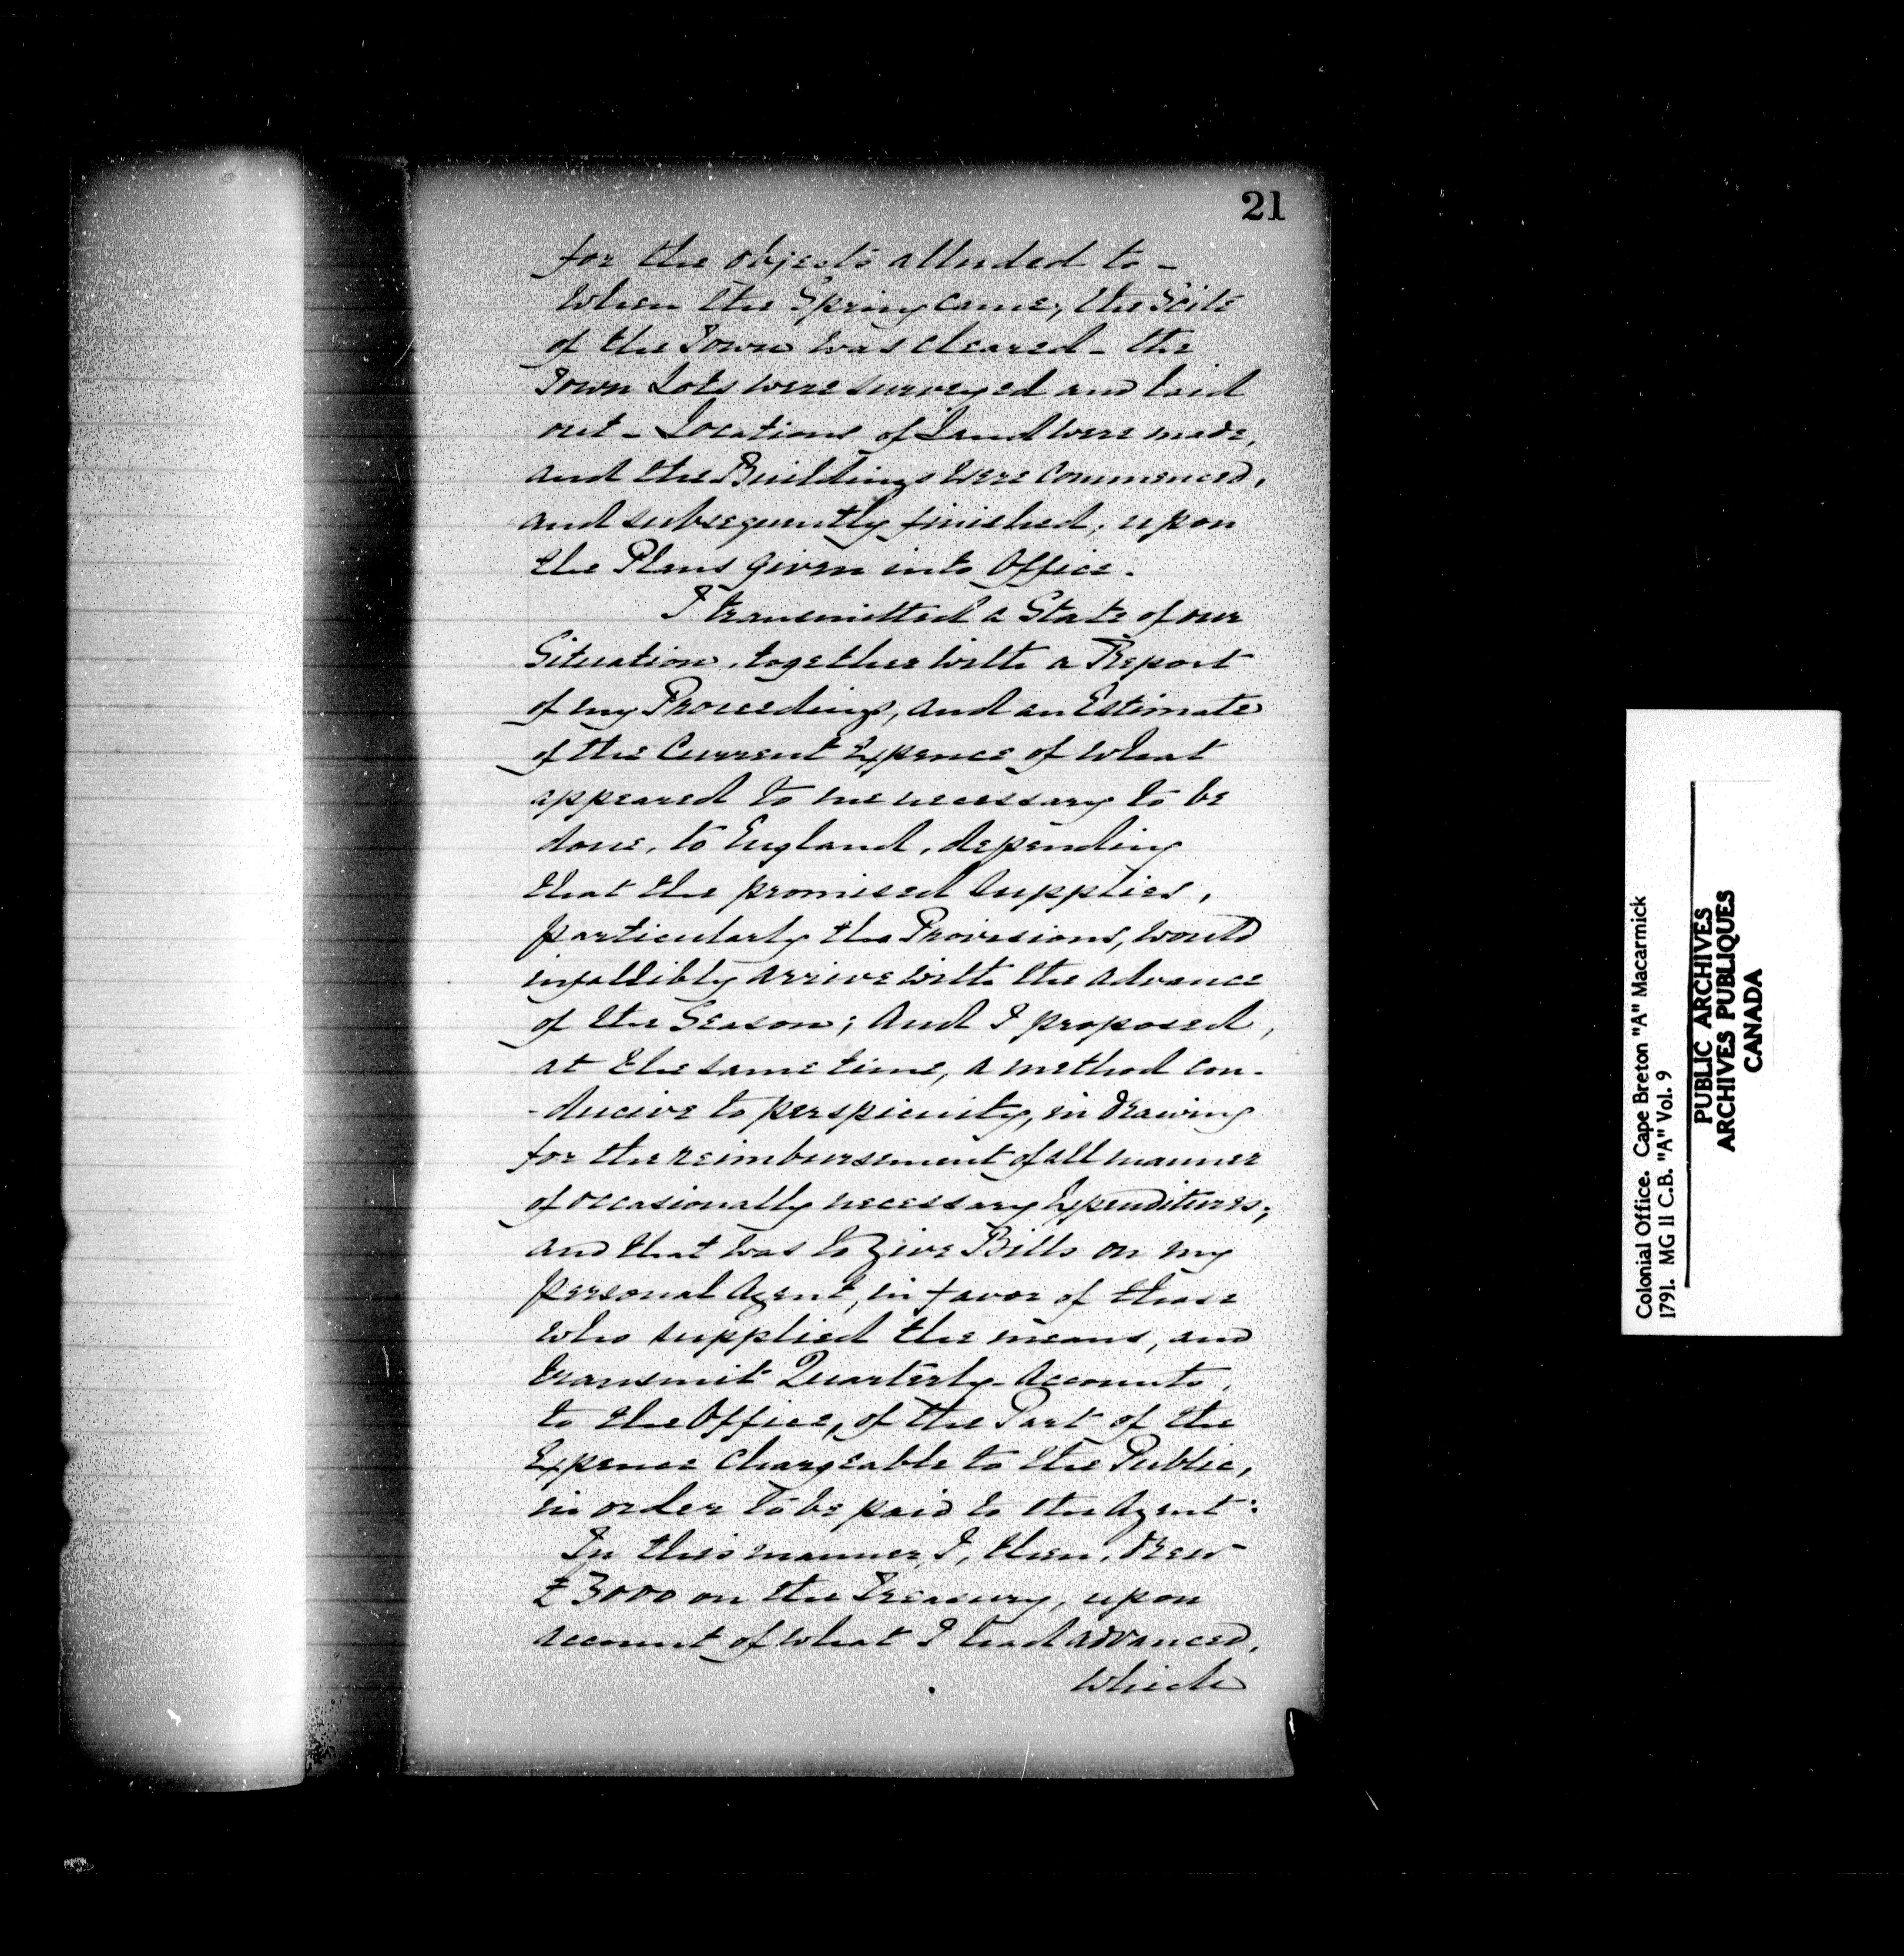 21
for the objects alluded to -
When the Spring came, the Scite
of the Town was cleared - the
Town Lots were surveyed and laid
out - Locations of Land were made,
and the Buildings were commenced,
and subsequently finished, upon
the Plans given into Office.
I transmitted a State of our
Situation, together with a Report
of my Proceedings, and an Estimate
of the Current Expence of what
appeared to me necessary to be
done, to England, depending
that the promised Supplies,
particularly the Provisions, would
infallibly arrive with the advance
of the Season; And I proposed,
at the same time, a method con-
-ducive to perspicuity, in drawing
for the reimbursement of all manner
of occasionally necessary Expenditures;
and that was to give Bills on my
personal Agent, in favor of those
who supplied the means, and
transmit Quarterly Accounts,
to the Office, of the Part of the
Expence chargeable to the Public,
in order to be paid to the Agent:
In this manner, I, then, drew
£3000 on the Treasury, upon
account of what I had advanced,
which
Colonial Office. Cape Breton "A" Macarmick
1791. MG 11 C.B. "A" Vol. 9
PUBLIC ARCHIVES
ARCHIVES PUBLIQUES
CANADA